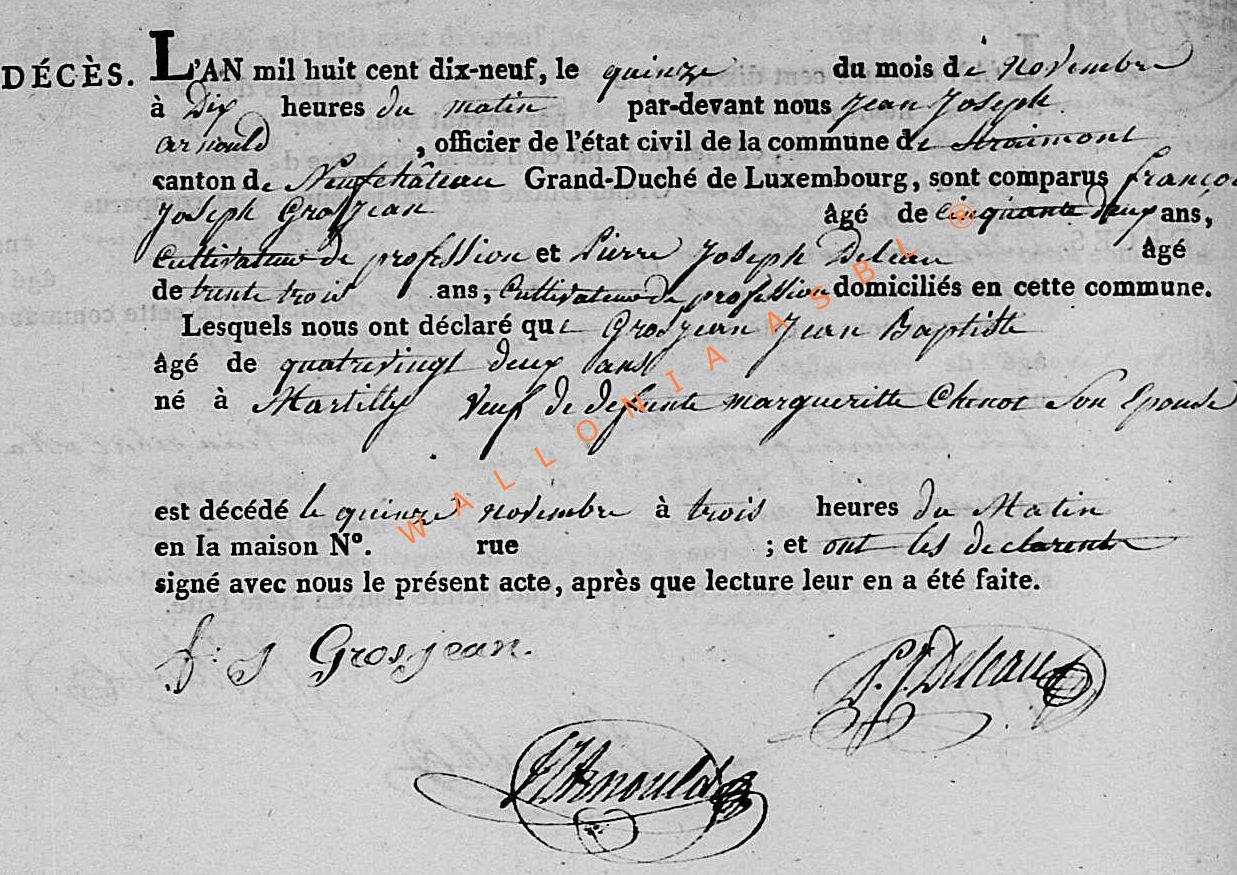 DÉCÈS. L'AN mil huit cent dix-neuf, le quinze du mois de novembre
à Dix heures du matin par-devant nous Jean Joseph
arnould , officier de l'état civil de la commune de Straimont
canton de Neufchâteau Grand-Duché de Luxembourg, sont comparus françois
Joseph Grosjean âgé de cinquante deux ans,
Cultivateur de profession et Pierre Joseph Deleau âgé
de trente trois ans, Cultivateur de profession domiciliés en cette commune.
Lesquels nous ont déclaré que Grosjean Jean Baptiste
âgé de quatrevingt deux ans
né à Martilly veuf de defunte margueritte Chenot Son Epouse
est décédé le quinze novembre à trois heures du Matin
en la maison N°. rue ; et ont les declarents
signé avec nous le présent acte, après que lecture leur en a été faite.
f: J Grosjean.
P. J. Deleau
JJArnould
WALLONIA ASBL ®